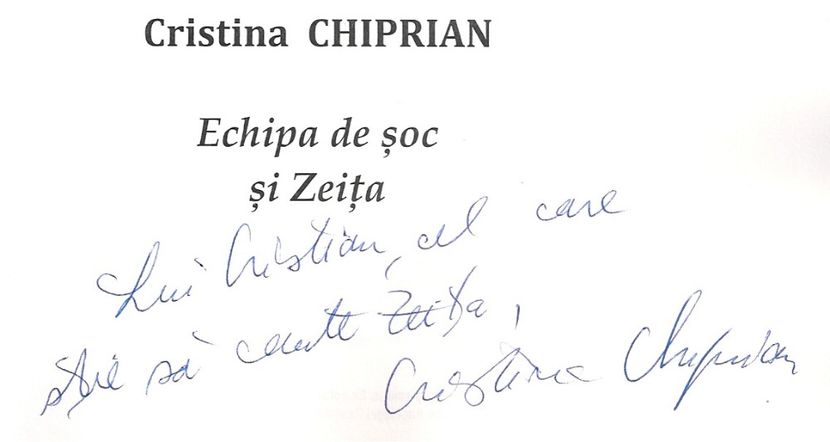 Cristina CHIPRIAN
Echipa de șoc
și Zeița
Lui Cristian, cel care
știe să caute Zeița,
Cristina Chiprian